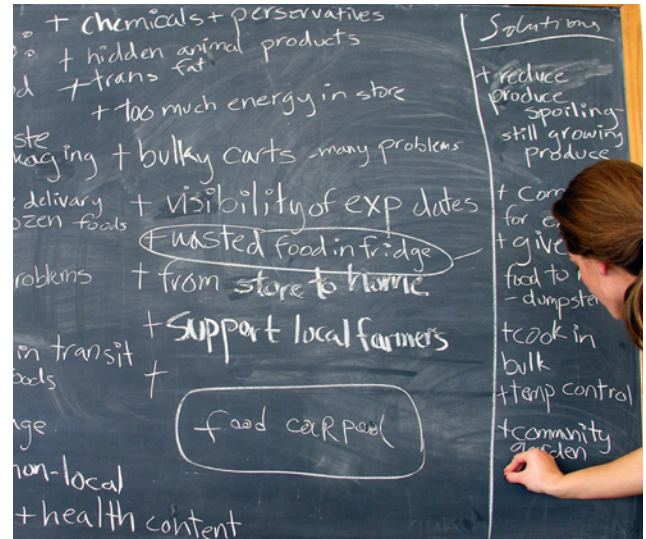 + chemicals + perservatives
+ hidden animal products
+ trans fat
+ too much energy in store
+ bulky carts - many problems
delivary + visibility of exp dates
foods
+ wasted food in fridge
+ from store to home
+ support local farmers
in transit +
food carpool
non-local
+ health content
Solutions
+ reduce
produce
spoiling -
still growing
produce
+
for
+ give
food to
- dumpster
+ cook in
bulk
+ temp control
+ commnity
garden